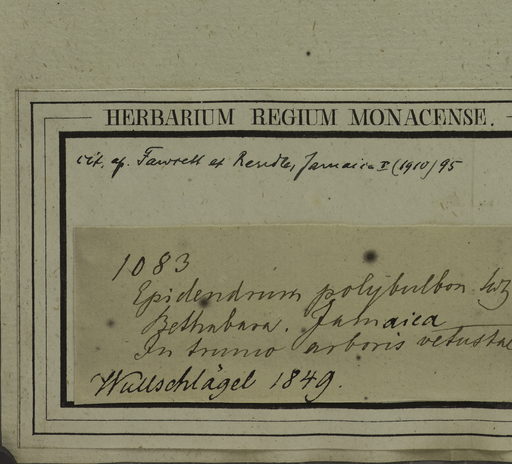 HERBARIUM REGIUM MONACENSE.
cit. ap. Fawcett et Rendle, Jamaica I (1910) 95
1083
Epidendrum polybulbon Sw
Bethabara. Jamaica
In trunco arboris vetustae
Wullschlägel 1849.